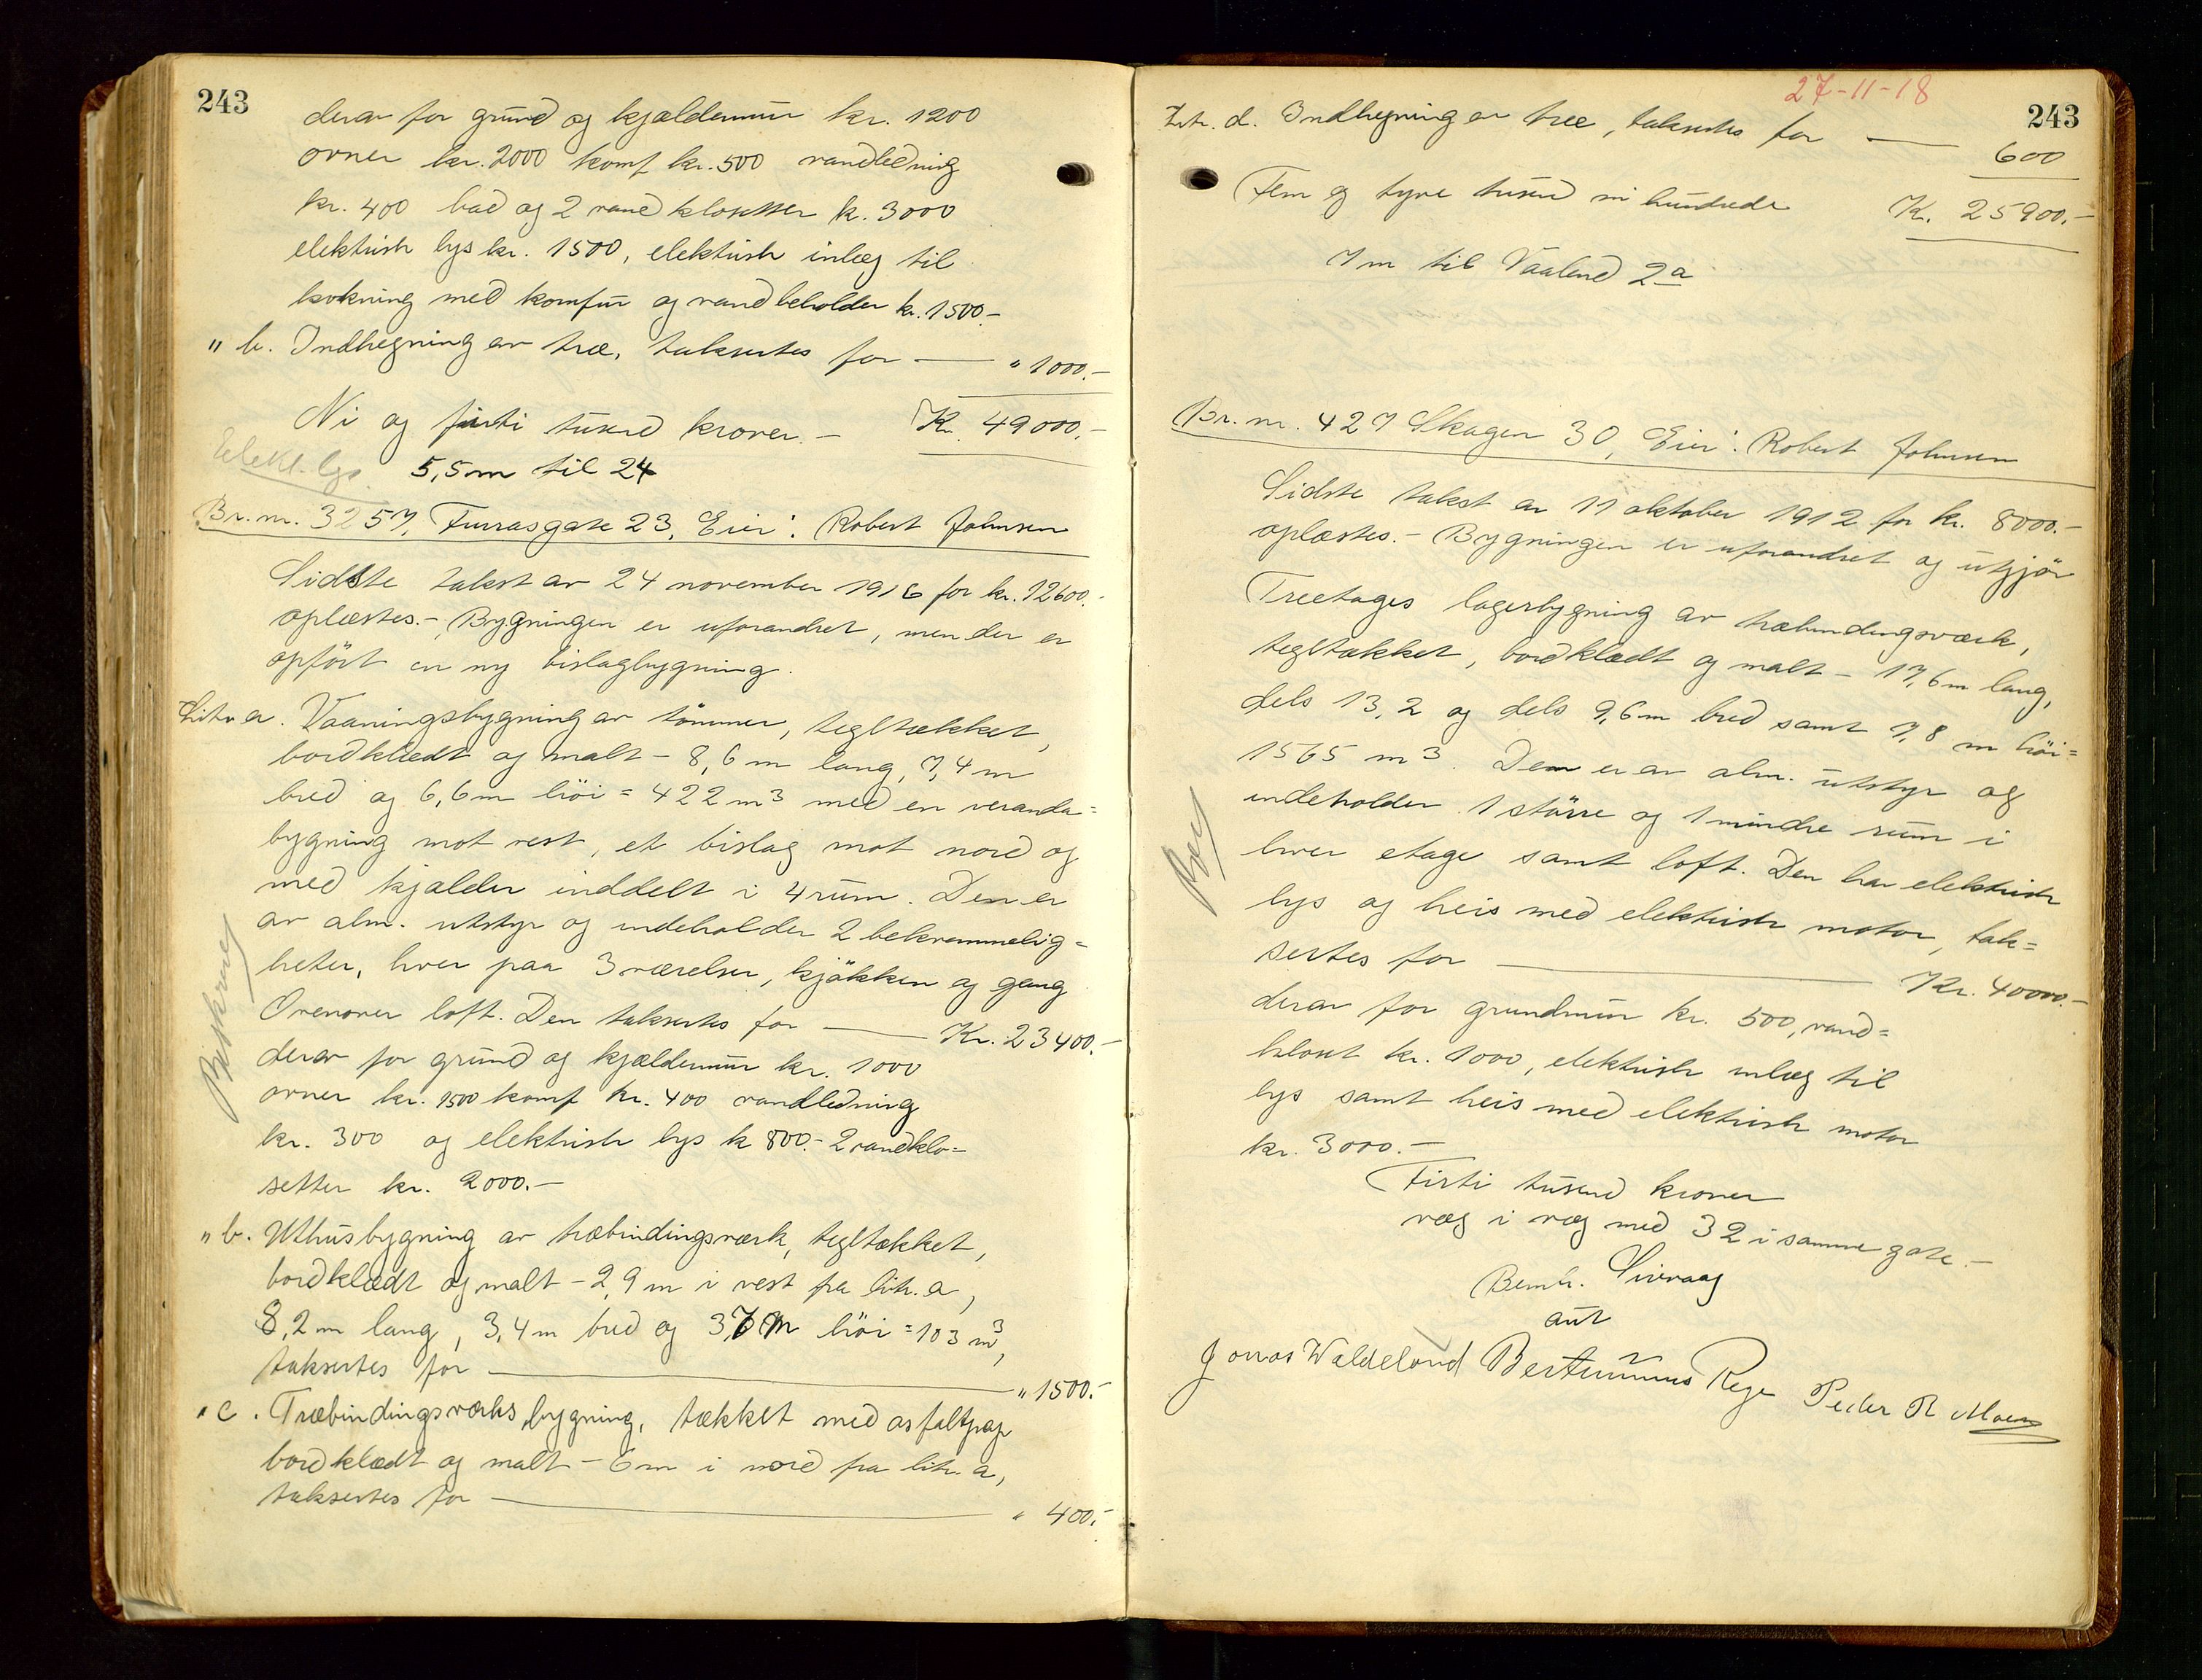 243
derav for grund og kjældermur kr. 1200
ovner kr. 2000 komf kr. 500 vandledning
kr. 400 bad og 2 vandklosetter k. 3000
elektrisk lys kr. 1500, elektrisk inlæg til
kokning med komfur og vandbeholder kr. 1500.-
" b. Indhegning av træ, taksertes for — " 1000.-
Ni og firti tusend kroner.- Kr. 49000.-
Elekt. lys. 5,5m til 24
Br. nr. 3257, Furrasgate 23, Eier: Robert Johnsen
Sidste takst av 24 november 1916 for kr. 12600.-
oplæstes.- Bygningen er uforandret, men der er
opført en ny bislagbygning.
Litr a. Vaaningsbygning av tömmer, tegltækket,
bordklædt og malt - 8,6 m lang, 7,4 m
bred og 6,6m höi = 422 m3 med en veranda=
bygning mot vest, et bislag mot nord og
med kjælder inddelt i 4 rum. Den er
av alm. utstyr og indeholder 2 bekvemmelig=
heter, hver paa 3 værelser, kjökken og gang
Ovenover loft. Den taksertes for — Kr. 23400.-
derav for grund og kjældermur kr. 1000
ovner kr. 1500 komf kr. 400 vandledning
kr. 300 og elektrisk lys k 800.- 2 vandklo=
setter kr. 2000.-
Beskrev
" b. Uthusbygning av træbindingsværk, tegltækket,
bordklædt og malt - 2,9 m i vest fra litr. a,
8,2 m lang, 3,4 m bred og 3,7 m höi = 103 m3,
taksertes for — " 1500.-
" c. Træbindingsværks bygning, tækket med asfaltpap
bordklædt og malt - 6 m i nord fra litr. a,
taksertes for — " 400.-
27-11-18
243
Litr. d. Indhegning av træ, taksertes for — 600
Fem og tyve tusend ni hundrede Kr. 25900.-
7 m til Vaalend 2a
Br. nr. 427 Skagen 30, Eier: Robert Johnsen
Sidste takst av 11 oktober 1912 for kr. 8000.-
oplæstes.- Bygningen er uforandret og utgjör
Treetages lagerbygning av træbindingsværk,
tegltækket, bordklædt og malt - 17,6 m lang,
dels 13,2 og dels 9,6m bred samt 7,8 m höi=
1565 m3. Den er av alm. utstyr og
indeholder 1 större og 1 mindre rum i
hver etage samt loft. Den har elektrisk
lys og heis med elektrisk motor, tak=
sertes for — Kr. 40000.-
derav for grundmur kr. 500, vand=
kloset kr. 1000, elektrisk inlæg til
lys samt heis med elektrisk motor
kr. 3000.-
Firti tusend kroner
væg i væg med 32 i samme gate.-
Bernh. Sirevaag
aut
Jonas Waldeland Bertinius Rege Peder R Moen